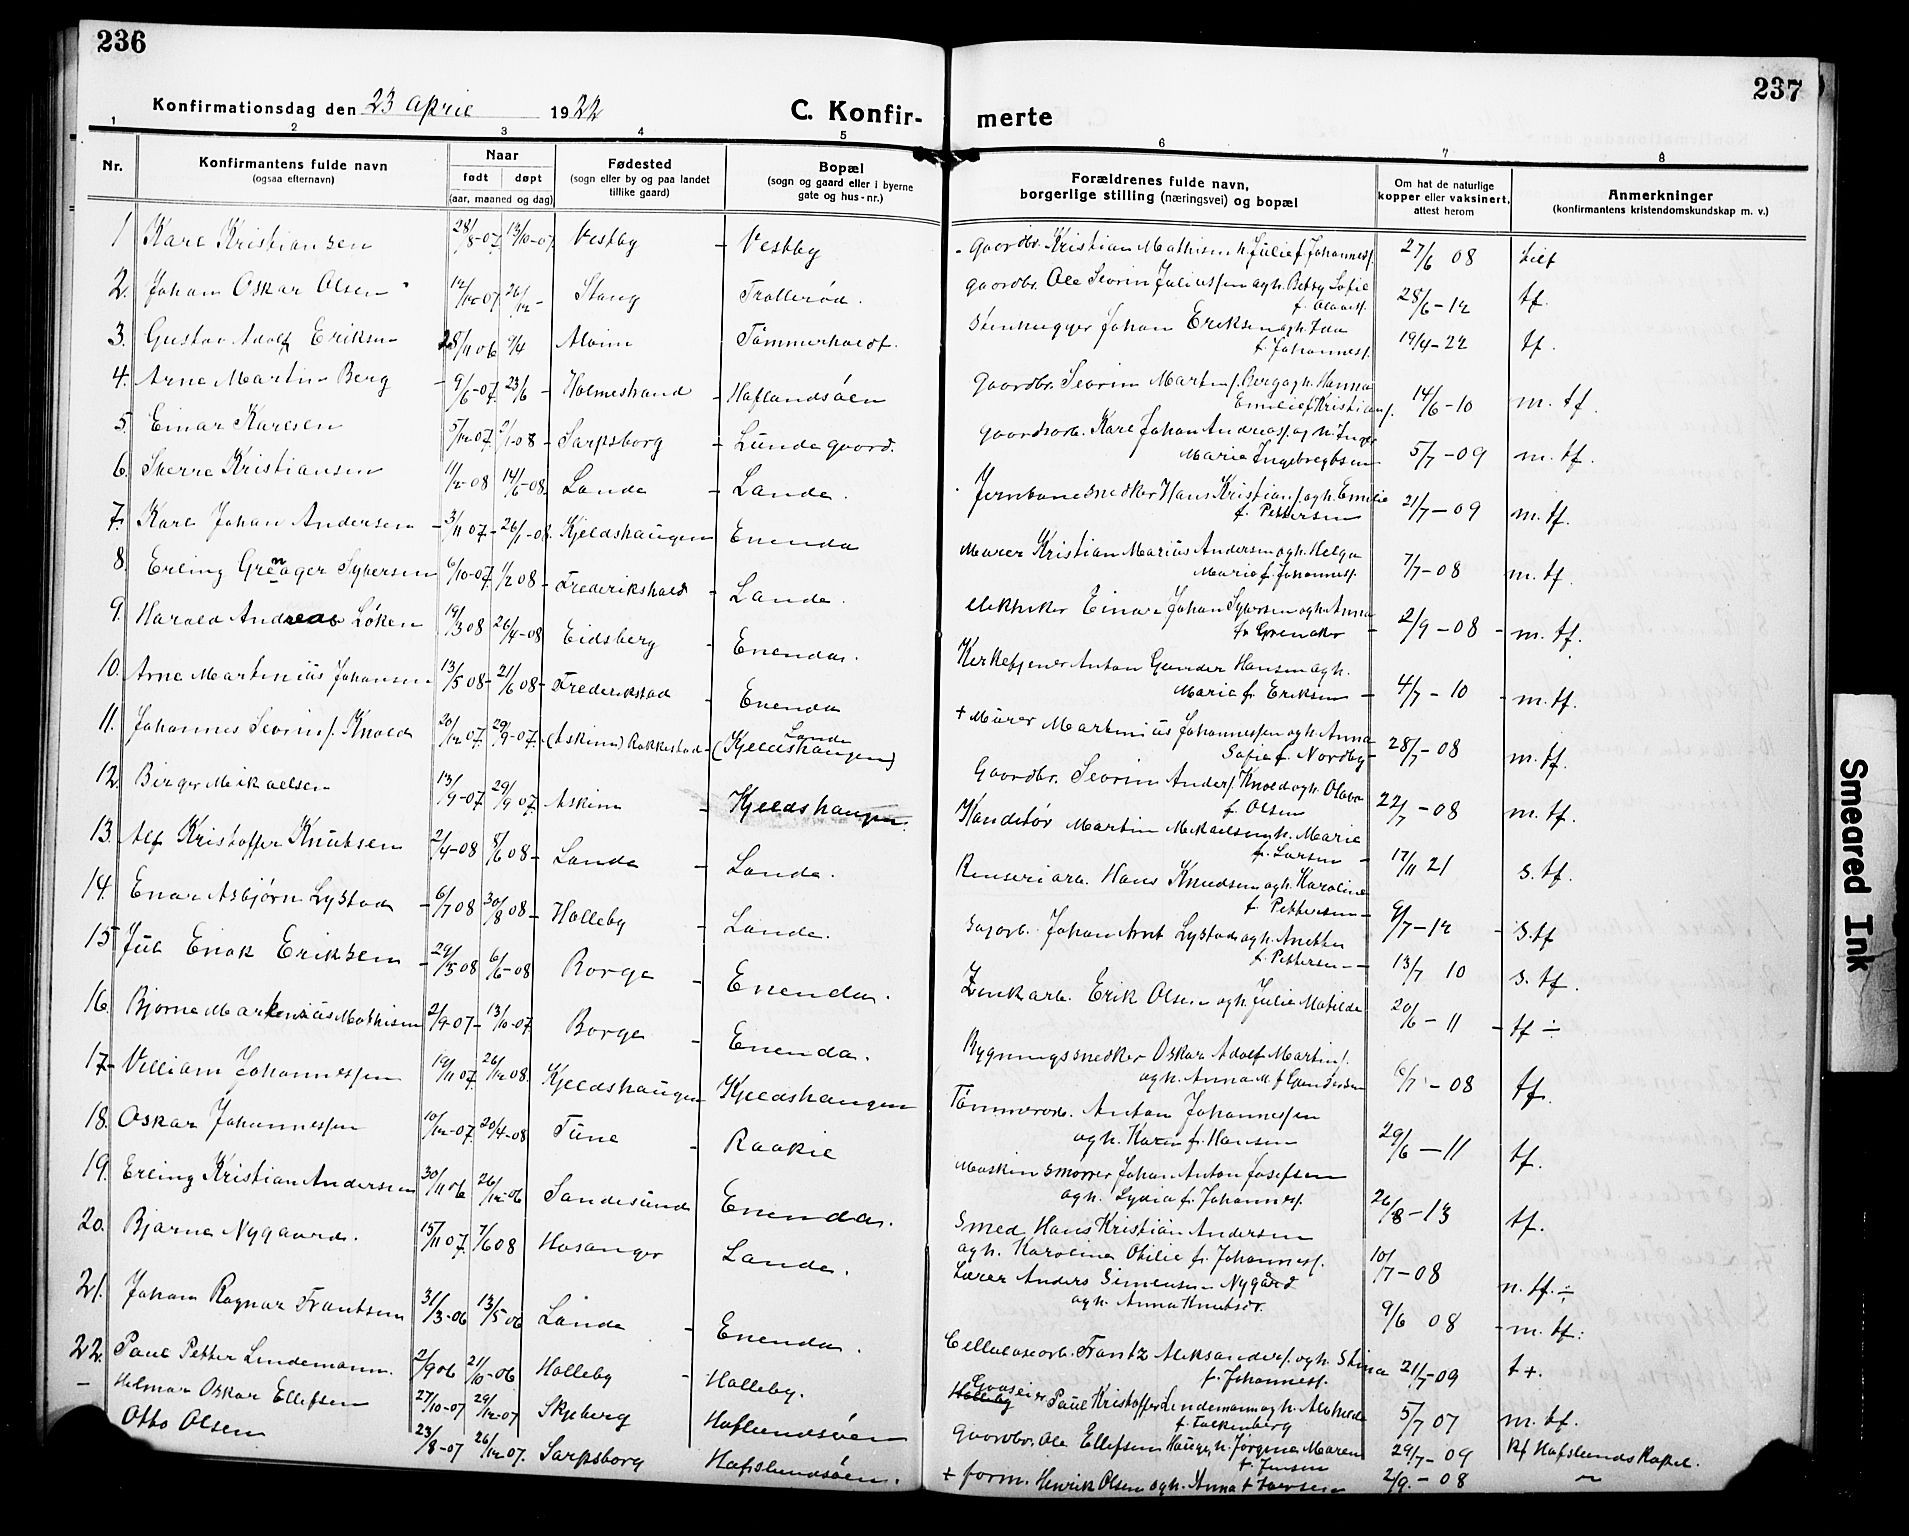 236
Konfirmationsdag den 23 april 1922
C. Konfir-
1 2 3 4 5
Nr. Konfirmantens fulde navn (ogsaa efternavn) Naar født døpt (aar, maaned og dag) Fødested (sogn eller by og paa landet tillike gaard) Bopæl (sogn og gaard eller i byerne gate og hus-nr.)
1 Karl Kristiansen 28/8-07 13/10-07 Vestby - Vestby
2. Johan Oskar Olsen 12/12-07 26/12- Stang Trollerød.
3. Gustav Adolf Eriksen 28/11 06 Alvim Tømmerholdt.
4. Arne Martin Berg - 9/6-07 23/6 - Holmestrand - Haflandsöen
5. Einar Karlsen 5/12-07 5/1-08 - Sarpsborg - Lunde gaard.
6. Sverre Kristiansen 11/2-08 14/6-08 Lande - Lande.
7. Karl Johan Andersen - 3/11 07- 26/1-08 Kjeldshaugen Enenda
8. Erling Grenager Syversen 6/10-07 1/2 08 - Frederikshald - Lande.
9. Harald Andreas Løken 19/3 08 26/4-08 Eidsberg - Enenda.
10. Arne Martinius Johansen 13/5 08- 21/6 08- Frederikstad - Enenda
11. Johannes Severin f. Knold 20/12 07. 29/9-07. (Askim) Rakkestad - Lande (Kjeldshaugen)
12. Birger Mikaelsen 13/9-07 29/9 07. Askim - Kjeldshaugen.
13. Alf Kristoffer Knutsen 2/4-08 8/6 08- Lande - Lande.
14. Enar Asbjørn Lystad - 6/7 08 30/8 08- Holleby - Lande.
15 Jul Enok Eriksen - 29/3 08 6/6-08 Borge - Enenda.
16. Bjarne Martenius Mathisen 2/9-07- 13/10-07. Borge - Enenda.
17- Villiam Johannessen 19/11 07. 26/12 08. Kjeldshaugen - Kjeldshaugen
18. Oskar Johannessen 10/12-07 20/4-08 Tune - Raakil
19. Erling Kristian Andersen 30/11 06 26/12-06 Sandesund Enenda.
20. Bjarne Nygaard. 15/11 07. 7/6 08 Hosanger Lande.
21. Johan Ragnar Frantsen 31/3-06 13/5 06 Lande - Enenda.
22. Paul Petter Lindemann. 2/9 06 21/10-06 Holleby - Holleby.
- Helmar Oskar Ellefsen 27/10-07 29/12-07 Skjeberg Haflundsöen
Otto Olsen 23/8-07 26/12 07. Sarpsborg Hafslundsöen.
237
merte
6 7 8
Forældrenes fulde navn, borgerlige stilling (næringsvei) og bopæl Om hat de naturlige kopper eller vaksinert, attest herom Anmerkninger (konfirmantens kristendomskundskap m. v.)
- gaardbr. Kristian Mathisen h. Julie f. Johannesf. 27/6 08
gaardbr. Ole Severin Juliussen og h. Betsy Sofie
28/6-12 tf.
Stenhugger Johan Eriksen og h. Ida
f. Johannesf. 19/4-22 tf.
Gaardbr. Severin Martin f. Berg og h. Hanna
Emilie f. Kristianf. 14/6-10 m. tf.
gaardsarb. Karl Johan Andreasf. og h. Inga
Marie Ingebregtsen 5/7-09 m. tf.
Jernbanesnedker Hans Kristianf. og h. Emilie
f. Pettersen 21/7-09 m. tf.
Murer Kristian Marius Andersen og h. Helga
Marie f. Johannesf. 7/7-08 m. tf.
elektriker Einar Johan Syversen og h. Anna
f. Grenaker - 2/9-08 - m. tf.
Kirketjener Anton Gunder Hansen og h.
Marie f. Eriksen - 4/7-10 - m. tf.
+ Murer Martinius Johannessen og h. Anna
Sofie f. Nordby - 28/7-08 m. tf.
Gaardbr. Severin Andersf. Knold og h. Olava
f. Olsen 22/7-08 m. tf.
Konditor Martin Mikaelsen h. Marie
f. Larsen - 17/11 21 s. tf.
Renseriarb. Hans Knudsen og h. Karoline
f. Pettersen - 9/7-12 - s. tf
Sagarb. Johan Arnt Lystad og h. Anette
f. Pettersen - 13/7 10 s. tf.
Zinkarb. Erik Olsen og h. Julie Matilde
20/6-11 - tf ÷
Bygningssnedker Oskar Adolf Martinf.
og h. Anna M. f. Gundersen 6/7-08 tf.
Tømmerarb. Anton Johannessen
og h. Karen f. Hansen 29/6-11 tf.
Maskinsmører Johan Anton Josefsen
og h. Lydia f. Johannesf. 26/8-13 tf.
Smed Hans Kristian Andersen
og h. Karoline Otilie f. Johannesf. 10/7-08 n. tf. ÷
Lærer Anders Simensen Nygård
og h. Anna Knutsdr. 9/6 08 - m. tf:
Cellulosearb. Frantz Aleksanderf. og h. Stina
f. Johannesf. 21/7-09 t+.
Paul Kristoffer Lindemann og h. Matilde
f. Falkenberg 5/7 07 m. tf.
Gaardbr. Ole Ellefsen Hauge, h. Jørgine Maren
f. Jensen 29/7-09 Kf Hafslunds Kapel.
+ form. Henrik Olsen og h. Anna f. Iversen 2/9.-08 "
Smeared Ink